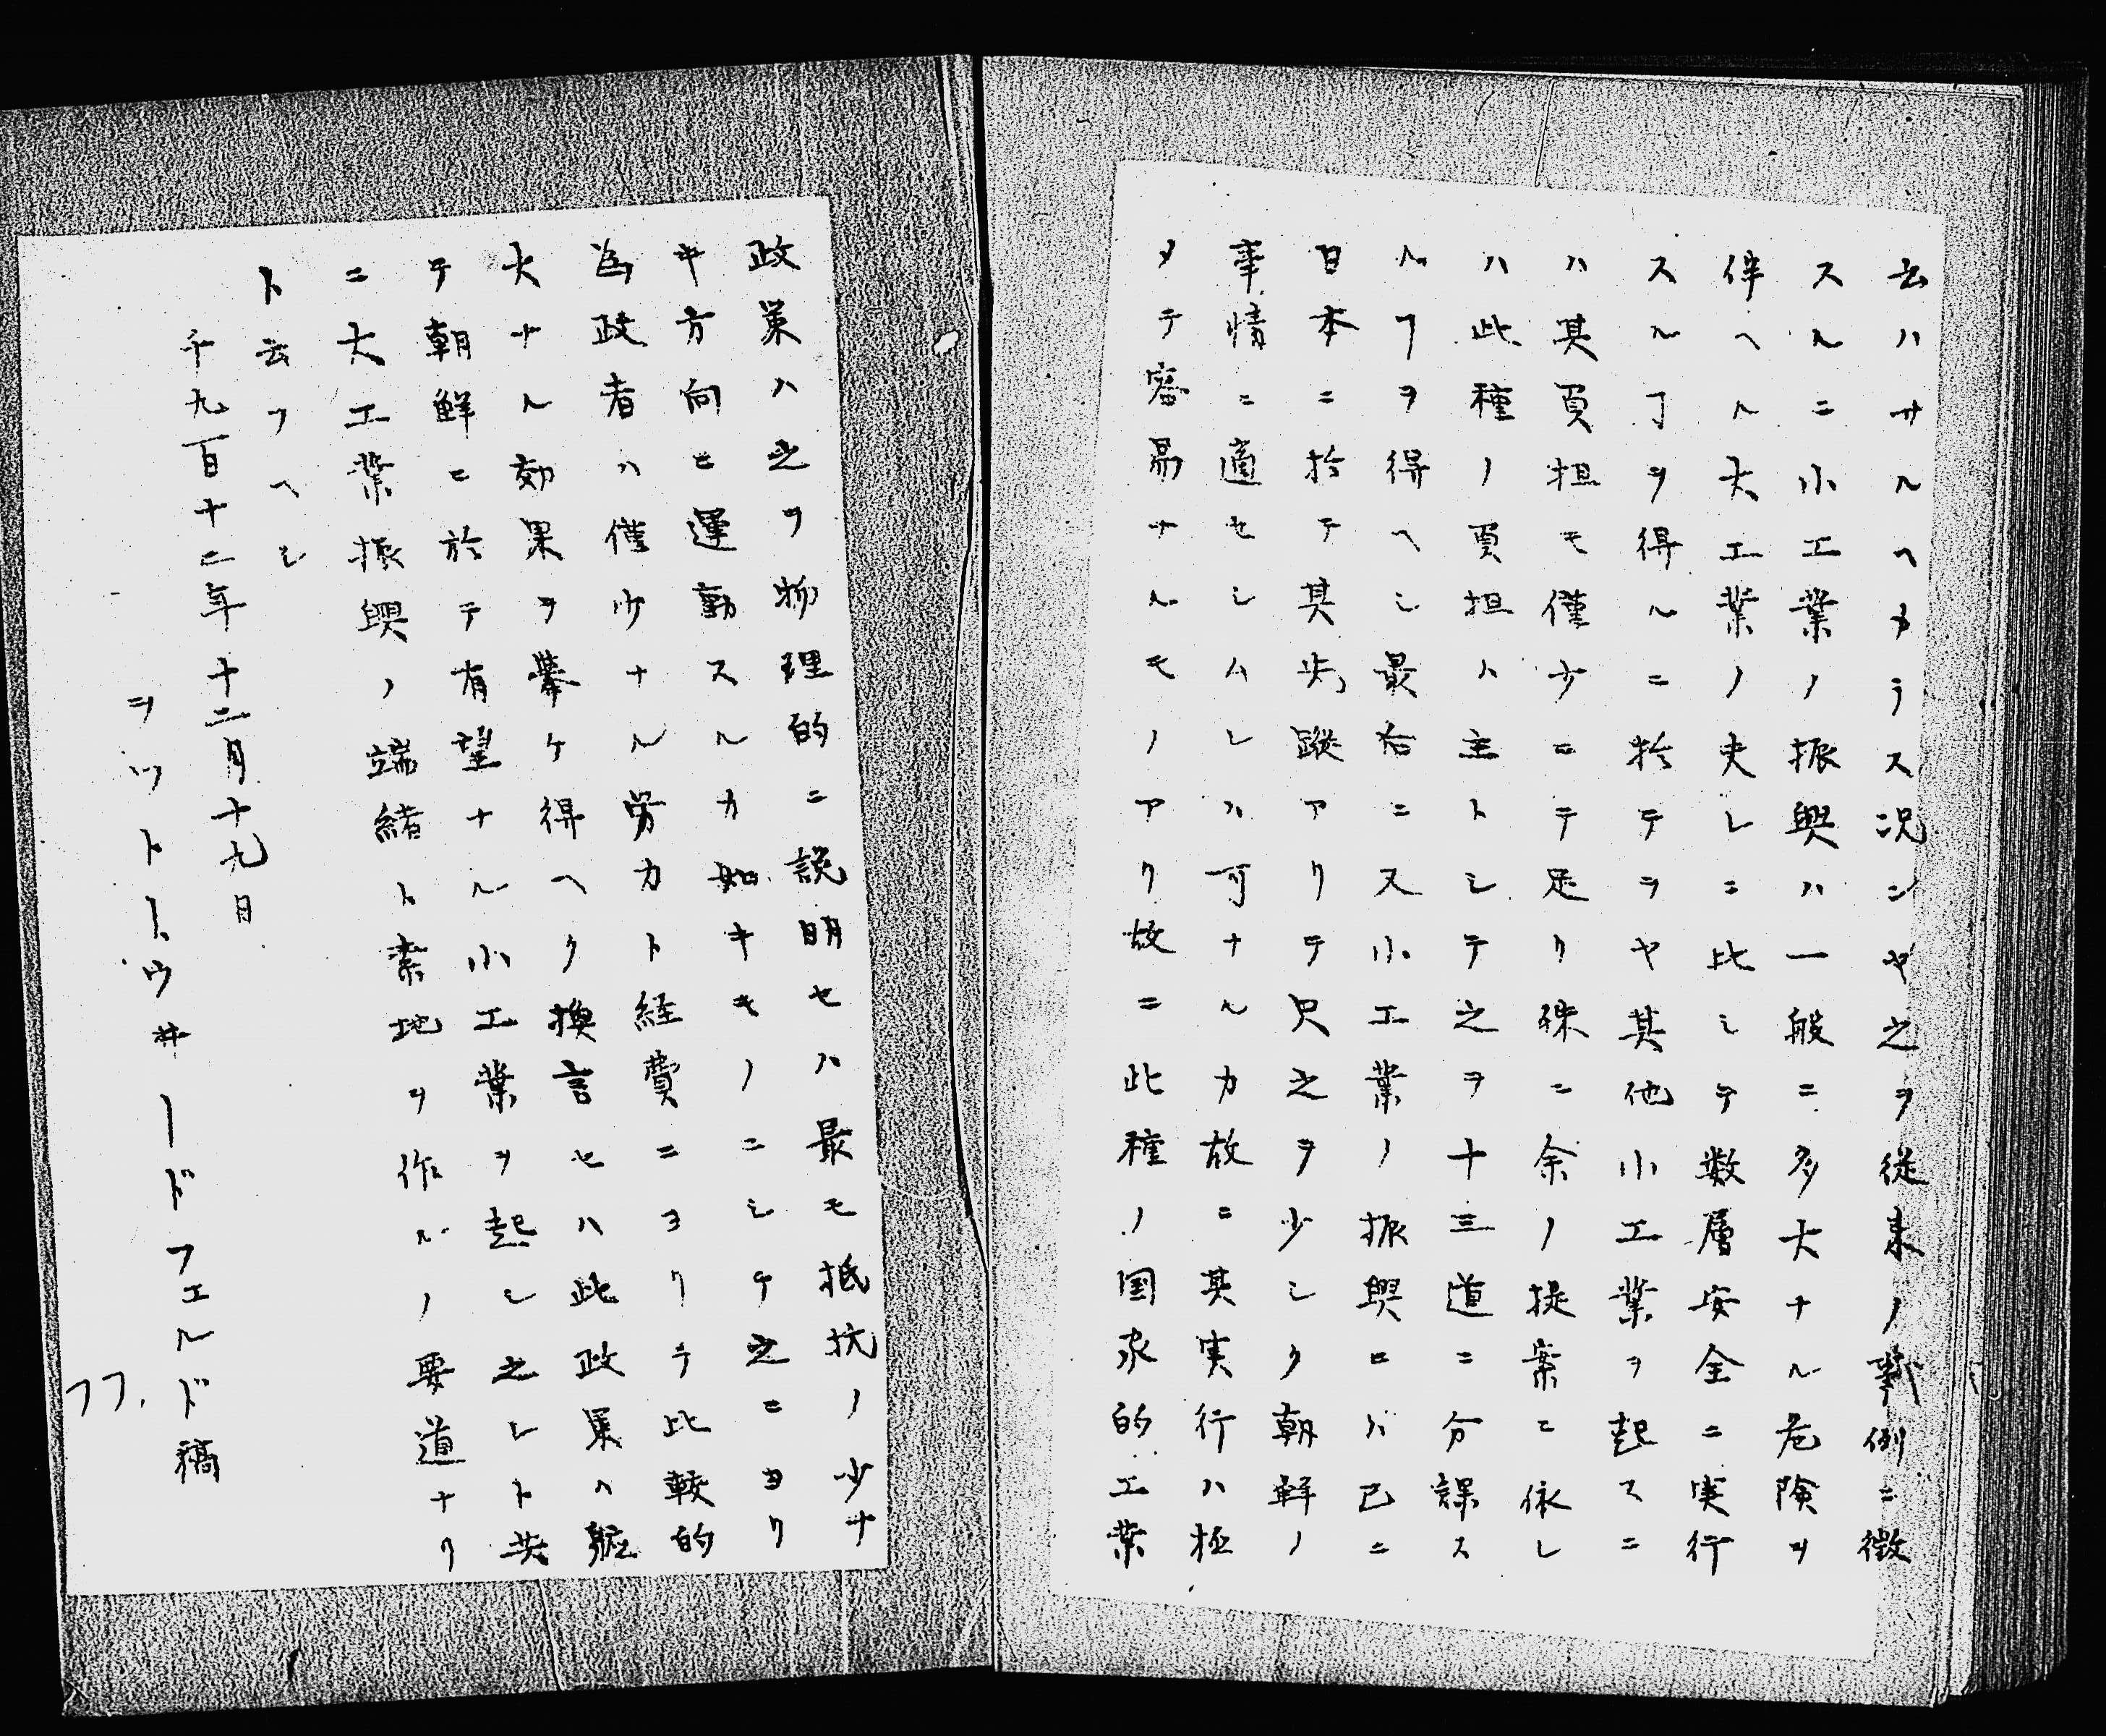 云ハサルヘカラス況ンヤ之ヲ従来ノ事例ニ徴
スルニ小工業ノ振興ハ一般ニ多大ナル危険ヲ
伴ヘル大工業ノ夫レニ比シテ数層安全ニ実行
スルヿヲ得ルニ於テヲヤ其他小工業ヲ起スニ
ハ其負担モ僅少ニテ足リ殊ニ余ノ提案ニ依レ
ハ此種ノ負担ハ主トシテ之ヲ十三道ニ分課ス
ルヿヲ得ヘシ最后ニ又小工業ノ振興ニハ已ニ
日本ニ於テ其先蹤アリテ只之ヲ少シク朝鮮ノ
事情ニ適セシムレハ可ナルカ故ニ其実行ハ極
メテ容易ナルモノアリ故ニ此種ノ国家的工業
政策ハ之ヲ物理的ニ説明セハ最モ抵抗ノ少ナ
キ方向ニ運動スルカ如キモノニシテ之ニヨリ
為政者ハ僅少ナル労力ト経費ニヨリテ比較的
大ナル効果ヲ挙ケ得ヘク換言セハ此政策ハ
テ朝鮮ニ於テ有望ナル小工業ヲ起シ之レト共
ニ大工業振興ノ端緒ト素地ヲ作ルノ要道ナリ
ト云フヘシ
千九百十二年十二月十九日
ヲットー、ウヰードフェルド稿
77.